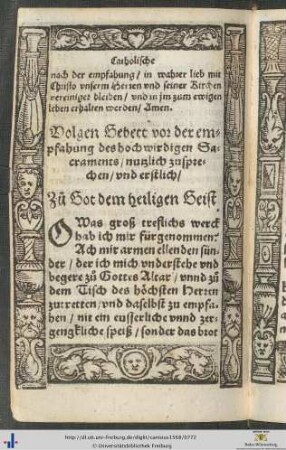 Catholische
nach der empfahung/ in wahrer lieb mit
Christo vnserm Herren vnd seiner Kirchen
vereiniget bleiben/ vnd in jm zum ewigen
leben erhalten werden/ Amen.
Volgen Gebett vor der em-
pfahung des hochwirdigen Sa-
craments/ nutzlich zuspre-
chen/ vnd erstlich/
Zů Got dem heiligen Geist
O Was groß trefflichs werck
hab ich mir fürgenommen?
Ach mir armen ellenden sün-
der/ der ich mich vnderstehe vnd
begere zů Gottes Altar/ vnnd zů
dem Tisch des höchsten Herren
zutretten/ vnd daselbst zu empfa-
hen/ nit ein eusserliche vnnd zer-
gengkliche speiß/ sonder das brot
http://dl.ub.uni-freiburg.de/diglit/canisius1568/0772
© Universitätsbibliothek Freiburg
Baden-Württemberg